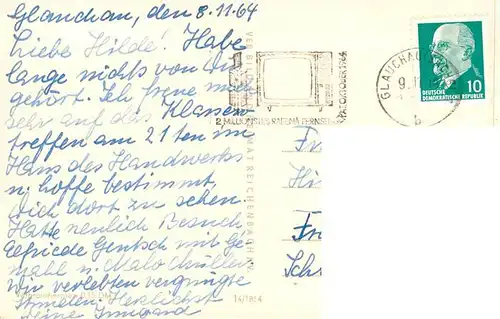 Glauchau, den 8.11.64
Liebe Hilde! Habe
lange nichts von Dir
gehört. Ich freue mich
sehr auf das Klassen
treffen am 21ten im
Haus des Handwerks
u. hoffe bestimmt,
dich dort zu sehen.
Hatte neulich Besuch
Gentsch mit Ge
mahl u.
Wir verlebten vergnügte
Stunden. Herzlichst
deine Irmgard
2 MILLIONSTES RAFENA FERNSEH
OKTOBER 1964
GLAUCHAU
9.11
b
DEUTSCHE
DEMOKRATISCHE REPUBLIK
10
REICHENBACH
Fr
Hi
Fr
Sch